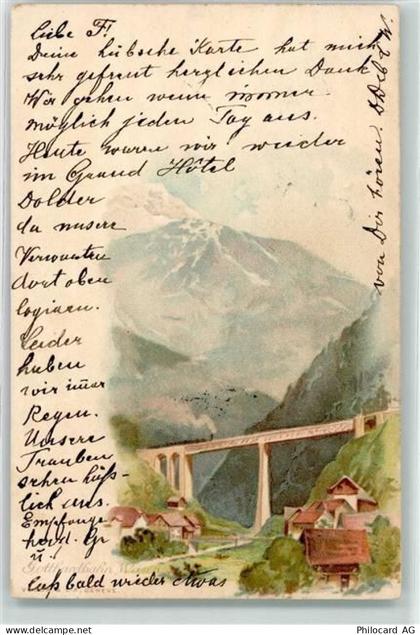 Liebe F!
Deine hübsche Karte hat mich
sehr gefreut herzlichen Dank
Wir gehen wenn immer
möglich jeden Tag aus.
Heute waren wir wieder
im Grand Hôtel
Dolder
da unsere
Verwandten
dort oben
logieren.
Leider
haben
wir immer
Regen.
Unsere
Trauben
sehen häß-
lich aus.
Empfange
herzl. Gr
u!
laß bald wieder etwas
von Dir hören.
Gotthardbahn
GENÈVE